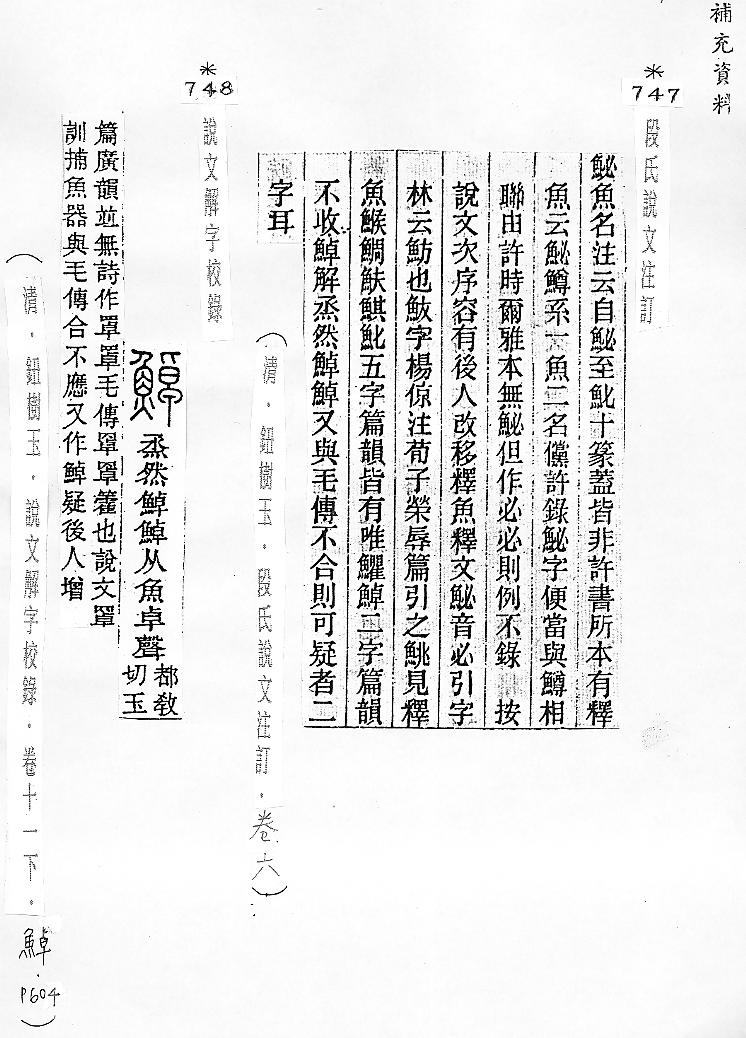 補充資料
*
747
段氏說文注訂
鮅魚名注云自鮅至魤十篆蓋皆非許書所本有釋
魚云鮅鱒系一魚二名儻許錄鮅字便當與鱒相
聯由許時爾雅本無鮅但作必必則例不錄 按
說文次序容有後人改移釋魚釋文鮅音必引字
林云魴也鮁字楊倞注荀子榮辱篇引之鮡見釋
魚鯸鯛鮇鯕魤五字篇韻皆有唯鸜䲦二字篇韻
不收䲦解烝然䲦䲦又與毛傳不合則可疑者二
字耳
(清．鈕樹玉．段氏說文注訂．卷六)
*
748
說文解字校錄
䲦 烝然䲦䲦从魚卓聲 都教切玉
篇廣韻並無詩作罩罩毛傳罩罩籗也說文罩
訓捕魚器與毛傳合不應又作䲦疑後人增
(清．鈕樹玉．說文解字校錄．卷十一下．䲦．P604)